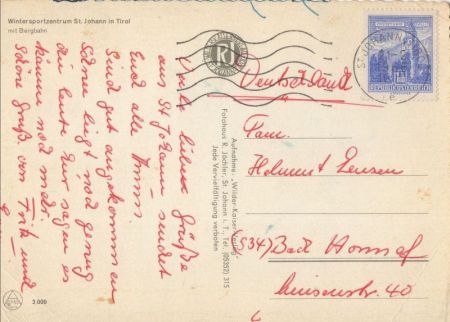 Wintersportzentrum St. Johann in Tirol
mit Bergbahn
Viele liebe Grüße
aus St Johann sendet
Euch alle
Sind gut angekommen
Schnee liegt noch genug
Die Leute hier sagen es
käme noch mehr.
Schöne Gruß von Fritz und
3 000
Aufnahme: „Wilder-Kaiser-Verlag"
Fotohaus R. Jöchler, St. Johann i. T., Tel. (05352) 315
Jede Vervielfältigung verboten
ST. JOHANN
REPUBLIK ÖSTERREICH
Deutschland
Fam.
Helmut
(534) Bad Honnef
40